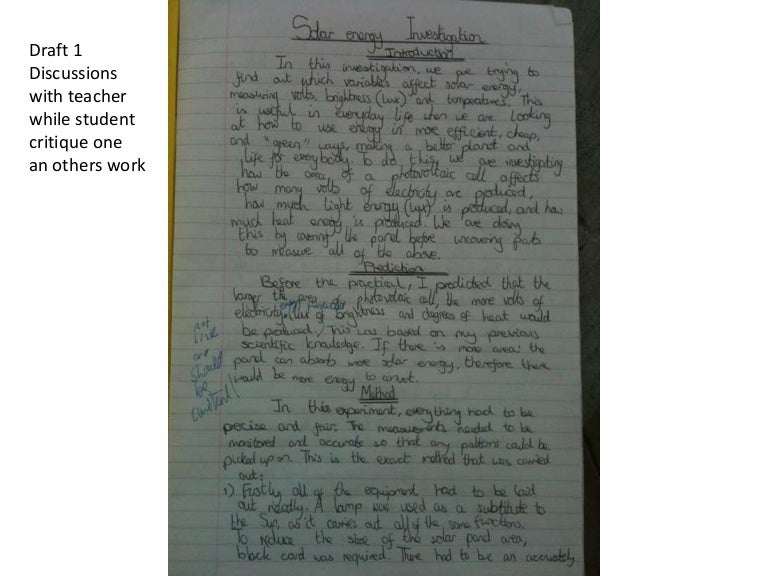 Draft 1
Discussions
with teacher
while student
critique one
an others work
Solar energy Investigation
Introduction
In this investigation, we are trying to
find out which variables affect solar energy,
measuring volts, brightness (lux) and temperatures. This
is useful in everyday life when we are looking
at how to use energy in more efficient, cheap,
and "green" ways, making a better planet and
life for everybody. To do this, we are investigating
how the area of a photovoltaic cell affects
how many volts of electricity are produced,
how much light energy (lux) is produced, and how
much heat energy is produced. We are doing
this by covering the panel before uncovering parts
to measure all of the above.
Prediction
Before the practical, I predicted that the
larger the area of photovoltaic cell, the more volts of
electricity, (lux of brightness and degrees of heat would
be produced.) This was based on my previous
scientific knowledge. If there is more area; the
panel can absorb more solar energy, therefore there
would be more energy to convert.
not
are
should
be
constant!
Method
In this experiment, everything had to be
precise and fair. The measurements needed to be
monitored and accurate so that any patterns could be
picked up on. This is the exact method that was carried
out:
1) Firstly all of the equipment had to be laid
out neatly. A lamp was used as a substitute to
the Sun, as it carries out all of the same functions.
To reduce the size of the solar panel area,
black card was required. There had to be an accurately